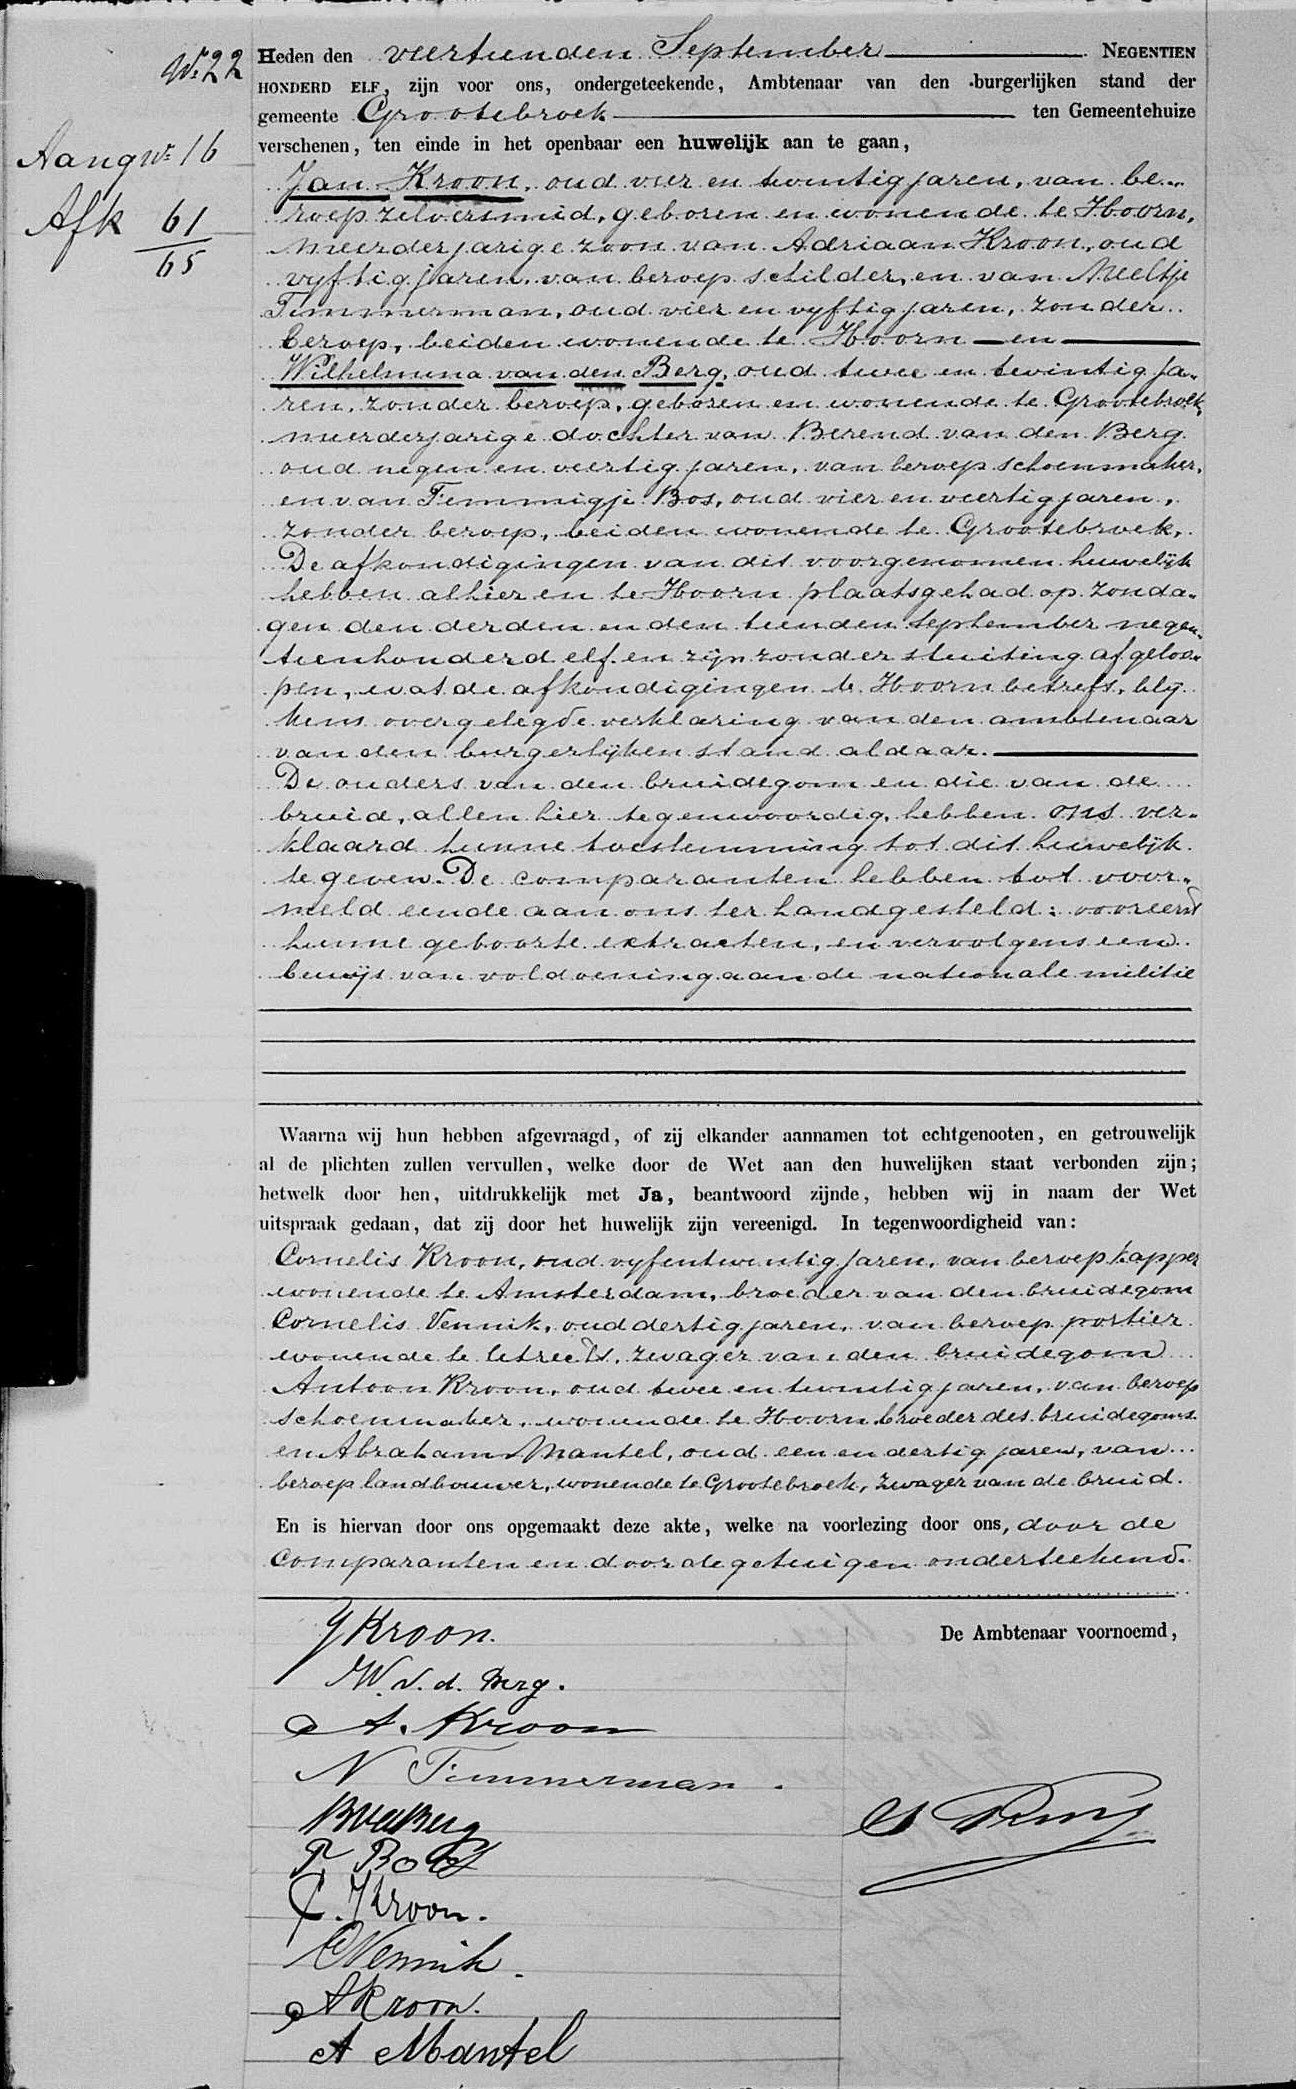 No 22
Heden den veertienden September NEGENTIEN
HONDERD ELF, zijn voor ons, ondergeteekende, Ambtenaar van den burgerlijken stand der
gemeente Grootebroek ten Gemeentehuize
verschenen, ten einde in het openbaar een huwelijk aan te gaan,
Aang No 16
Afk 61
65
Jan Kroon, oud vier en twintig jaren, van be-
roep zilversmid, geboren en wonende te Hoorn,
meerderjarige zoon van Adriaan Kroon, oud
vyftig jaren, van beroep schilder, en van Neeltje
Timmerman, oud vier en vyftig jaren, zonder
beroep, beiden wonende te Hoorn en
Wilhelmina van den Berg, oud twee en twintig ja-
ren, zonder beroep, geboren en wonende te Grootebroek,
meerderjarige dochter van Berend van den Berg
oud negen en veertig jaren, van beroep schoenmaker,
en van Femmigje Bos, oud vier en veertig jaren,
zonder beroep, beiden wonende te Grootebroek.
De afkondigingen van dit voorgenomen huwelijk
hebben alhier en te Hoorn plaatsgehad op zonda-
gen den derden en den tienden September negen-
tienhonderd elf en zijn zonder stuiting afgeloo-
pen, wat de afkondigingen te Hoorn betreft, blij-
kens overgelegde verklaring van den ambtenaar
van den burgerlijken stand aldaar.
De ouders van den bruidegom en die van de
bruid, allen hier tegenwoordig, hebben ons ver-
klaard hunne toestemming tot dit huwelijk
te geven. De comparanten hebben tot voor-
meld einde aan ons ter handgesteld: vooreerst
hunne geboorte extracten, en vervolgens een
bewijs van voldoening aan de nationale militie
Waarna wij hun hebben afgevraagd, of zij elkander aannamen tot echtgenooten, en getrouwelijk
al de plichten zullen vervullen, welke door de Wet aan den huwelijken staat verbonden zijn;
hetwelk door hen, uitdrukkelijk met Ja, beantwoord zijnde, hebben wij in naam der Wet
uitspraak gedaan, dat zij door het huwelijk zijn vereenigd. In tegenwoordigheid van:
Cornelis Kroon, oud vyfentwintig jaren, van beroep kapper
wonende te Amsterdam, broeder van den bruidegom
Cornelis Vennik, oud dertig jaren, van beroep portier
wonende te Utrecht, zwager van den bruidegom
Antoon Kroon, oud twee en twintig jaren, van beroep
schoenmaker, wonende te Hoorn broeder des bruidegoms
en Abraham Mantel, oud een en dertig jaren, van
beroep landbouwer, wonende te Grootebroek, zwager van de bruid.
En is hiervan door ons opgemaakt deze akte, welke na voorlezing door ons, door de
comparanten en door de getuigen onderteekend.
De Ambtenaar voornoemd,
J Kroon.
W. v. d. Berg.
A. Kroon
N Timmerman.
B vd Berg
F Bos
C. Kroon.
C Vennik.
A Kroon.
A Mantel